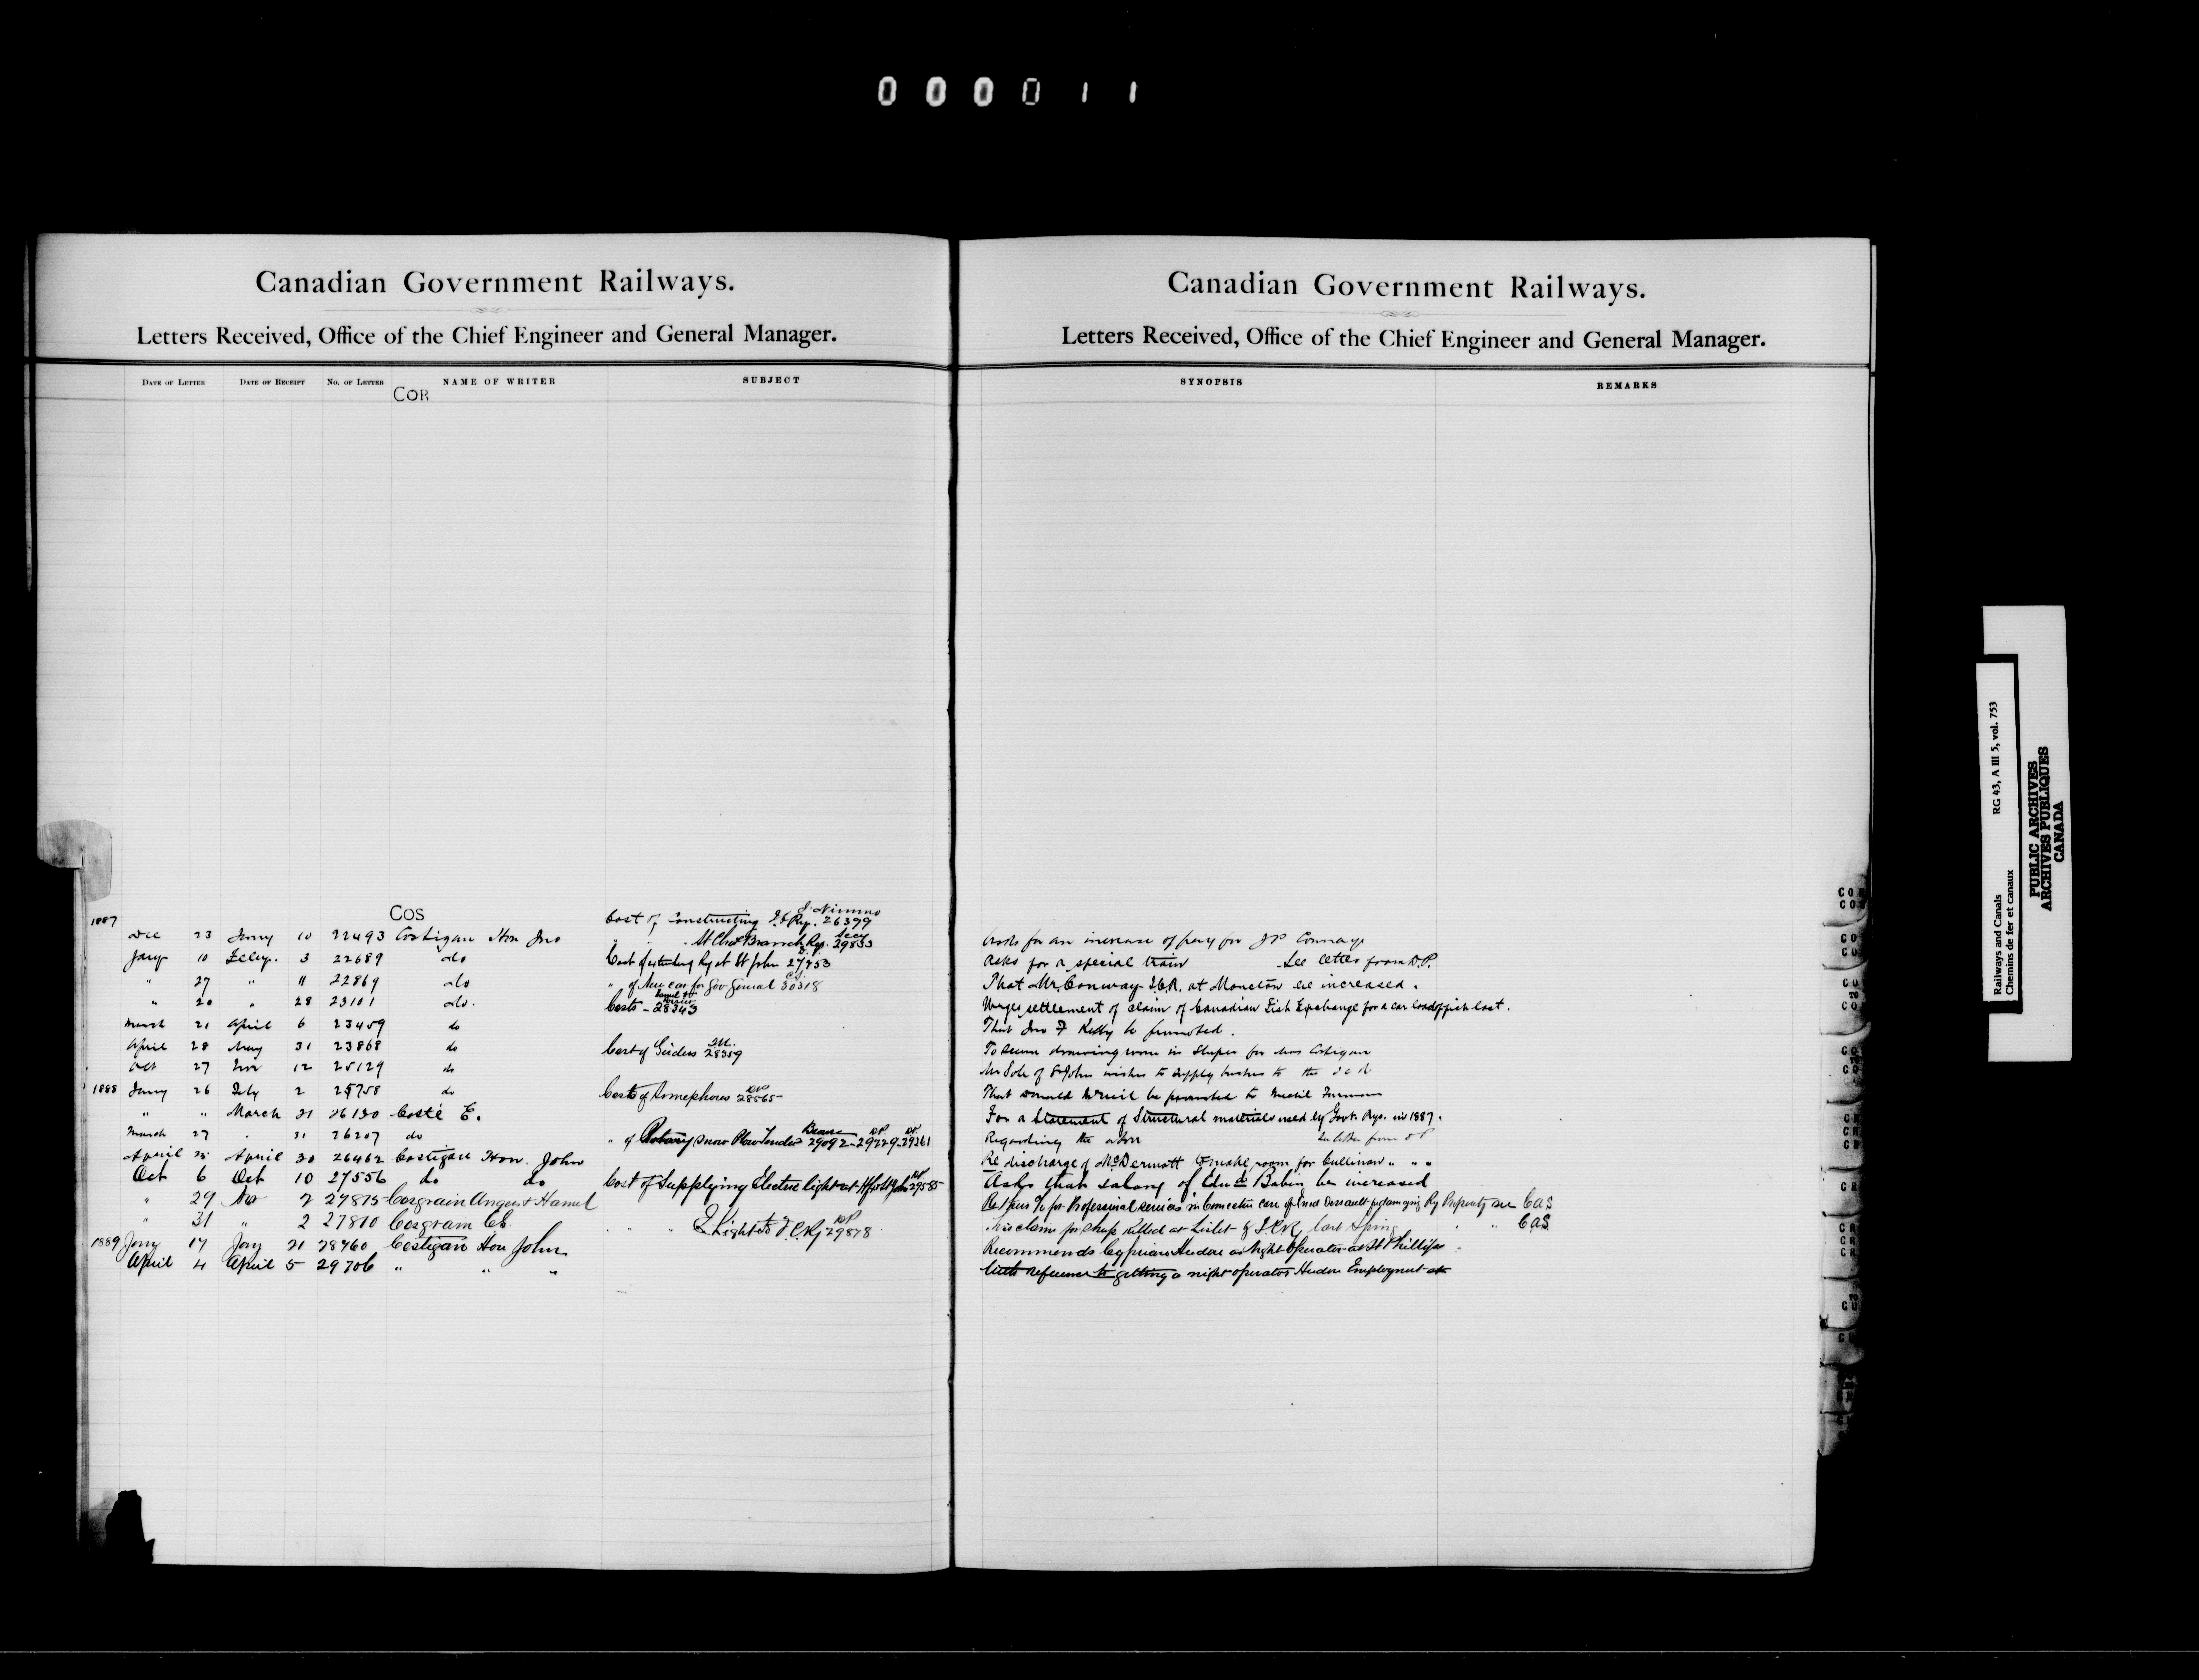 000011
Canadian Government Railways.
Letters Received, Office of the Chief Engineer and General Manager.
DATE OF LETTER DATE OF RECEIPT No. OF LETTER NAME OF WRITER SUBJECT
COR
COS
1887
Dec 23 Jany 10 22493 Costigan Hon Jno
Jany 10 Feby. 3 22689 do
" 27 " 11 22869 do
" 20 " 28 23101 do.
March 21 April 6 23459 do
April 28 May 31 23868 do
Oct 27 Nov 12 25129 do
1888 Jany 26 Feby 2 25758 do
" " March 21 26130 Costé E.
March 27 " 31 26207 do
April 25 April 30 26462 Costigan Hon. John
Oct 6 Oct 10 27556 do do
" 29 Nov 2 27815 Casgrain Angers & Hamel
" 31 " 2 27810 Casgrain Ch.
1889 Jany 17 Jany 21 28460 Costigan Hon John
April 4 April 5 29706 " " "
J. Nimmo
Cost of Constructing Ry. 26379
" " St Chas Branch Ry. 29833
Cost of extending Ry at St John 27453
" of New car for Gov General 30318
Costs - 28343
Cost of Girders 28359
Costs of Semaphores 28565
" of Rotary Snow Plow Tender 29092-29229-29361
Cost of Supplying Electric light at Hfx & St John 29585
" " Lights to I.C.Ry 29878
Canadian Government Railways.
Letters Received, Office of the Chief Engineer and General Manager.
SYNOPSIS REMARKS
Asks for an increase of pay for JP Conway
Asks for a special train See letter from D.P.
That Mr. Conway I.C.R. at Moncton be increased.
Urges settlement of claim of Canadian Fish Exchange for a car load of fish lost.
That Jno F Kelly be promoted.
To secure drawing room in Sleeper for Mrs Costigan
Mr Sole of St John wishes to supply brushes to the I C R
That Donald McNeil be promoted to
For a Statement of Structural materials used by Govt. Rys. in 1887.
Regarding the above See letter from D P
Re discharge of McDermott to make room for Cullinan " " "
Asks that salary of Edwd Babin be increased
for Professional services in Connection case of damaging Ry Property see CAS
His claim for Sheep killed at L'Islet by I.C.Ry last Spring " " CAS
Recommends Cyprian Hudon as Night Operator at St Phillipe
With reference to getting a night operator Hudon Employment at
Railways and Canals RG 43, A III 5, vol. 753
Chemins de fer et canaux
PUBLIC ARCHIVES
ARCHIVES PUBLIQUES
CANADA